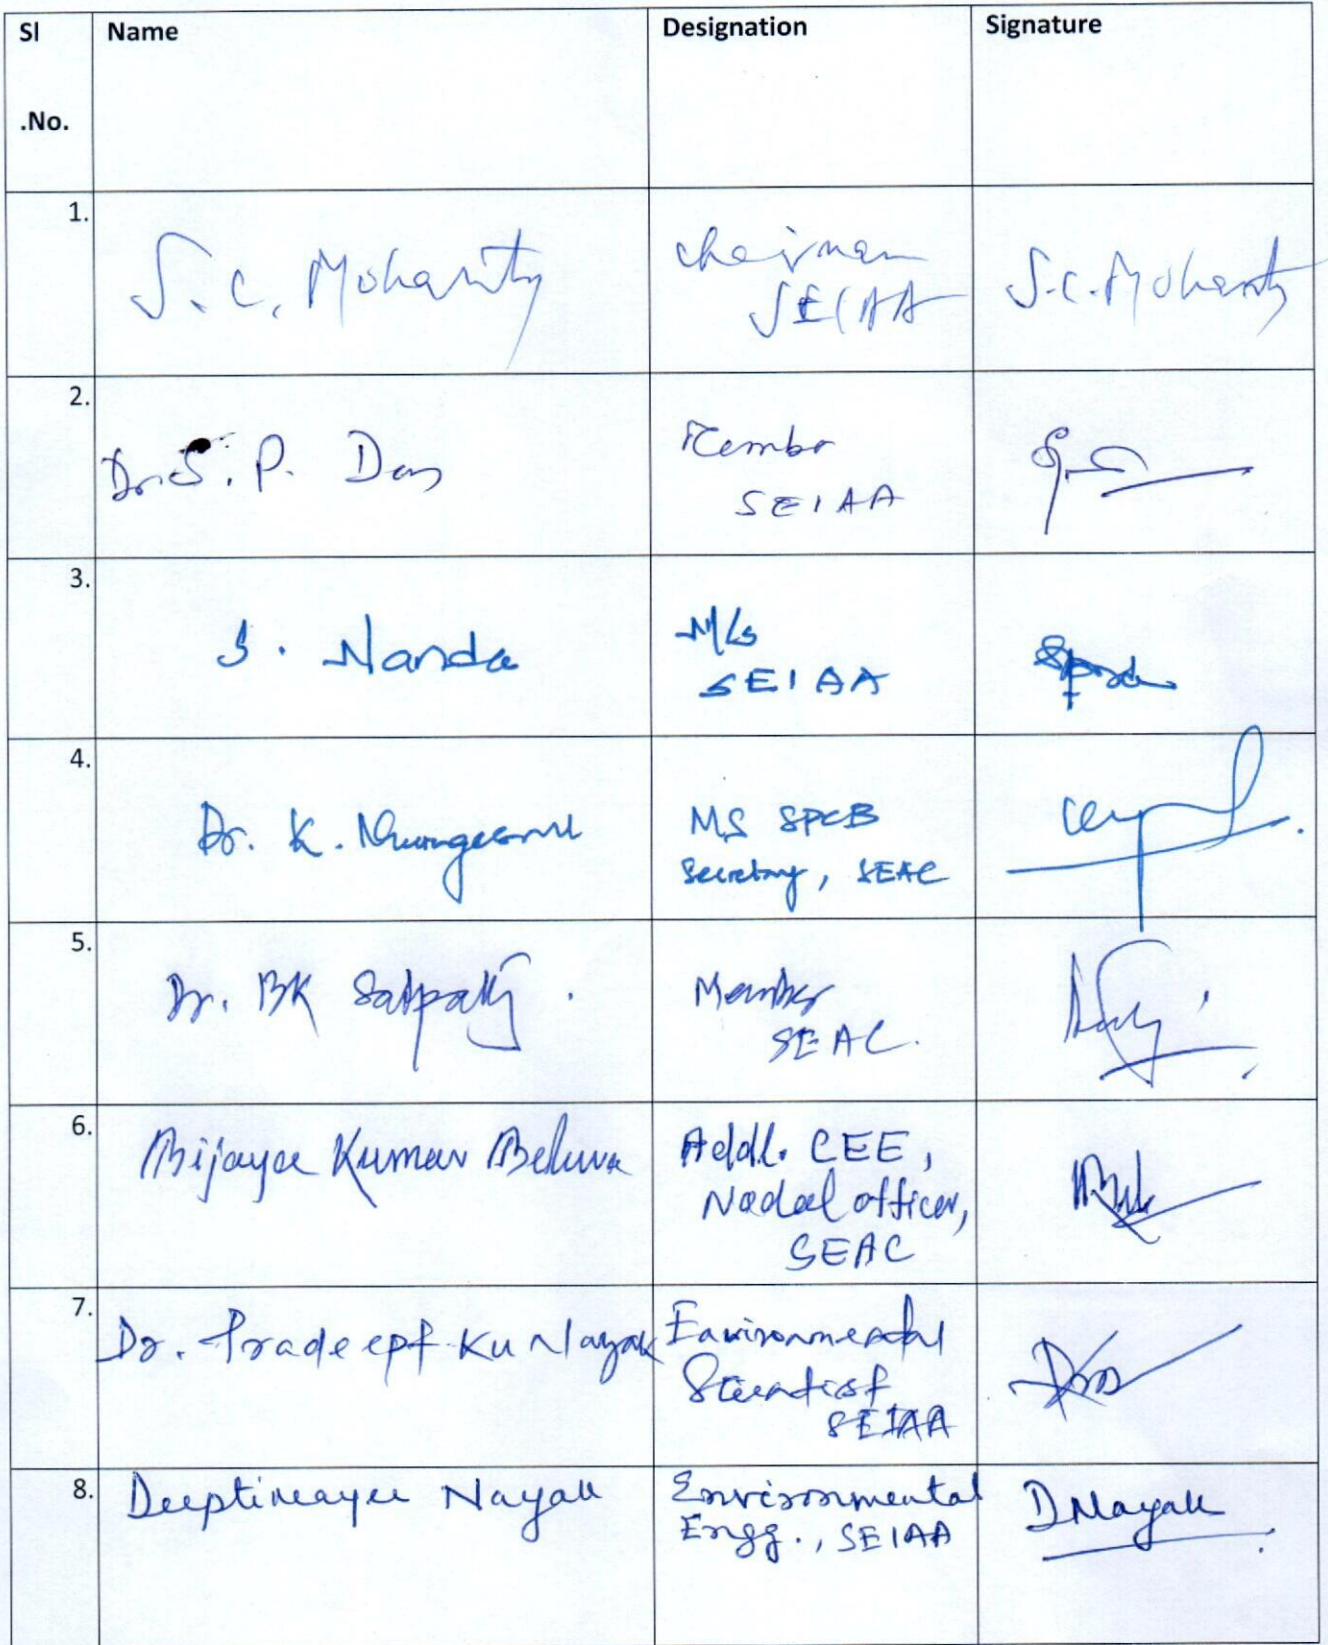 Sl Name Designation Signature
.No.
1. S. C. Mohanty Chairman S.C. Mohanty
SEIAA
2. Dr. S. P. Das Member
SEIAA
3. S. Nanda M/s
SEIAA
4. Dr. K. MS SPCB
Secretary, SEAC
5. Dr. BK Satpathy Member
SEAC.
6. Bijaya Kumar Addl. CEE,
Nodal officer,
SEAC
7. Dr. Pradeept Ku Nayak Environmental
Scientist
SEIAA
8. Deeptimayee Nayak Environmental DNayak
Engg., SEIAA